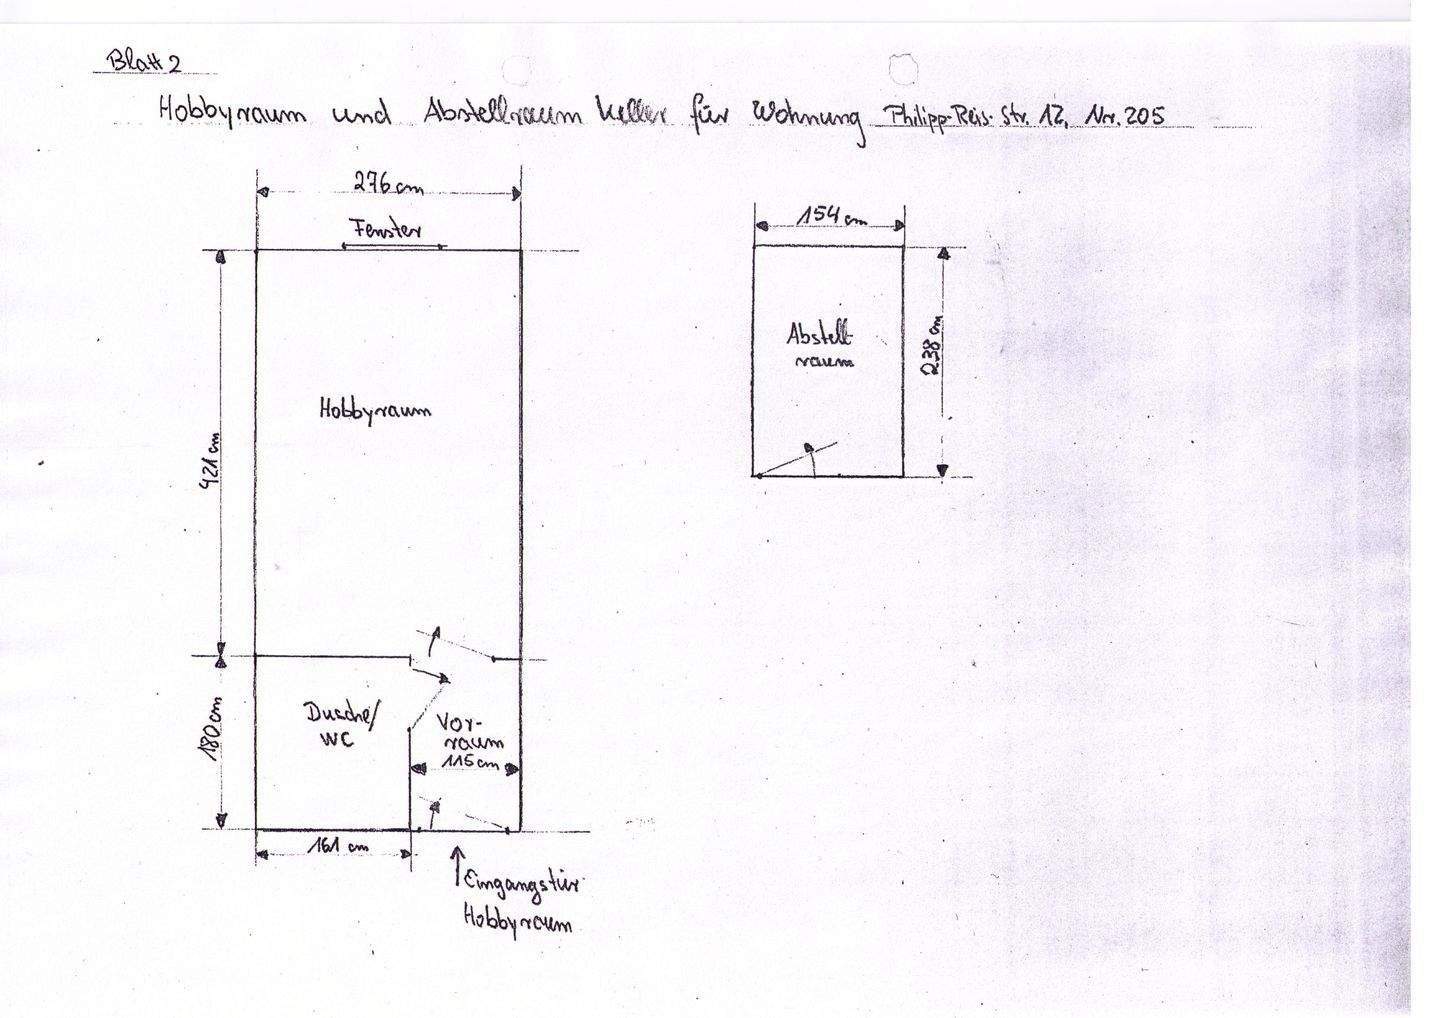 Blatt 2
Hobbyraum und Abstellraum Keller für Wohnung Philipp-Reis-Str. 12, Nr. 205
276 cm
Fenster
154 cm
Abstell-
raum
238 cm
Hobbyraum
421 cm
Dusche/
WC
Vor-
raum
115 cm
180 cm
161 cm
Eingangstür
Hobbyraum